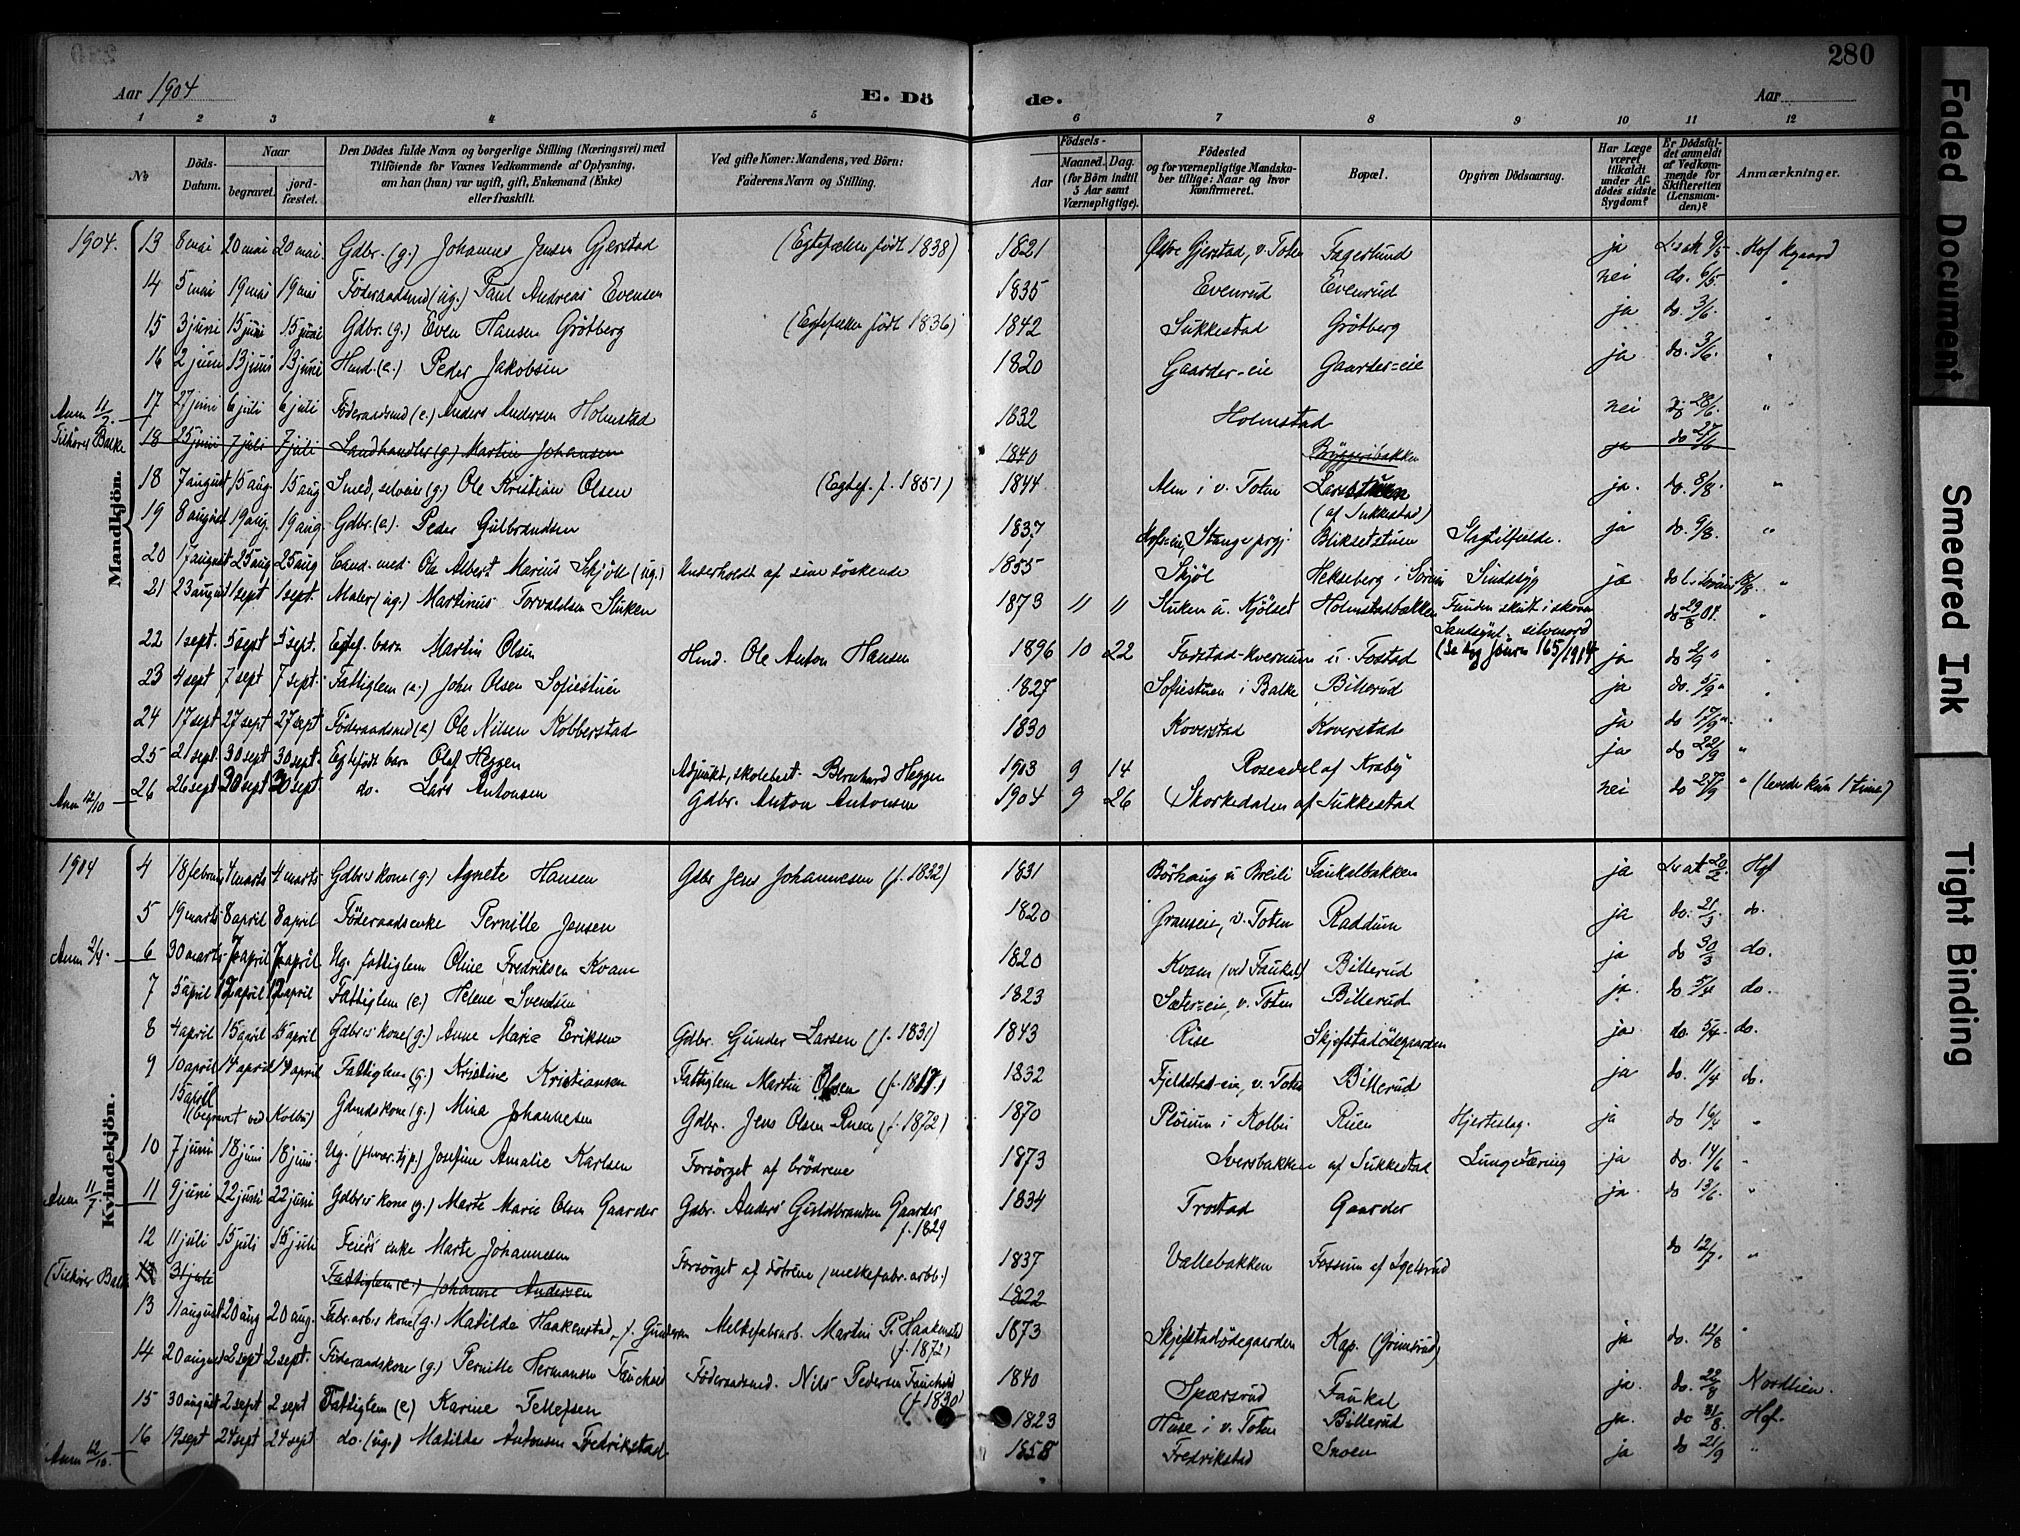 280
Aar 1904
E. Dö
de.
Aar
1 2 3 4 5 6 7 8 9 10 11 12
No
Döds-Datum.
Naar
begravet.
jord-fæstet.
Den Dödes fulde Navn og borgerlige Stilling (Næringsvei) med
Tilföiende for Voxnes Vedkommende af Oplysning,
om han (hun) var ugift, gift, Enkemand (Enke)
eller fraskilt.
Ved gifte Koner: Mandens, ved Börn:
Faderens Navn og Stilling.
Födsels-
Aar
Maaned. Dag.
(for Börn indtil
5 Aar samt
Værnepligtige).
Födested
og for værnepligtige Mandska-
ber tillige: Naar og hvor
konfirmeret.
Bopæl.
Opgiven Dödsaarsag.
Har Læge
været
tilkaldt
under Af-
dödes sidste
Sygdom?
Er Dödsfal-
det anmeldt
af Vedkom-
mende for
Skifteretten
(Lensman-
den)?
Anmærkninger.
Mandkjön.
1904. 13 8 mai 20 mai 20 mai. Gdbr. (g.) Johannes Jensen Gjerstad (Egtefælle födt 1838) 1821 Östre Gjerstad, v. Toten Fagerlund ja 9/5 Hof kgaard
14 5 mai 19 mai 19 mai Föderaadsmd (ug.) Paul Andreas Evensen 1835 Evenrud Evenrud nei do. 6/5. "
15 3 juni 15 juni 15 juni Gdbr. (g.) Even Hansen Grötberg (Egtefælle födt 1836) 1842 Sukkestad Grötberg ja do. 3/6. "
16 2 juni 13 juni 13 juni Husmd. (e.) Peder Jakobsen 1820 Gaarder-eie Gaarder-eie ja do. 3/6. "
Anm 11/7. 17 27 juni 6 juli 6 juli Föderaadsmd (e.) Anders Andersen Holmstad 1832 Holmstad nei do 28/6. "
Tilhører Balke 18 25 juni 7 juli 7 juli Landhandler (g.) Martin Johansen 1840 Bryggeribakken ja do 27/6
18 7 august 15 aug. 15 aug Smed, selveier (g.) Ole Kristian Olsen (Egtef. f. 1851) 1844 Alm i v. Toten Larsstuen (af Sukkestad) ja. do. 8/8. "
19 8 august 19 aug. 19 aug Gdbr. (e.) Peder Gulbrandsen 1837 Stange prgj. Bliksetstuen Slagtilfælde. ja do 9/8. "
20 17 august 25 aug 25 aug Cand. med. Ole Albert Marius Skjöll (ug.) Underholdt af sine söskende 1855 Skjöl Hekseberg i Sindssyg ja do 18/8. "
21 23 august 1 sept 1 sept. Maler (ug.) Martinus Torvaldsen Stuken 1873 11 11 Stuken u. Kjölset Holmstadbakken Funden skutt i skoven Sandsynl. selvmord (Se dag journ 165/1904 do 29/8 04. "
22 1 sept. 5 sept 5 sept. Egtef. barn Martin Olsen Husmd. Ole Anton Hansen 1896 10 22 Fodstad-kvernen u. Fodstad ja do 2/9 " "
23 4 sept 7 sept 7 sept. Fattiglem (e.) John Olsen Sofiestuen 1827 Sofiestuen i Balke Billerud ja do. 5/9 " "
24 17 sept 27 sept 27 sept Föderaadsmd (e) Ole Nilsen Kobberstad 1830 Koverstad Koverstad ja do 17/9 " "
25 21 sept. 30 sept 30 sept. Egtefödt barn Olaf Heggen Adjunkt, skolebest. Bernhard Heggen 1903 9 14 Rosendal af Kraby ja do 22/9 "
Anm 12/10 26 26 sept 30 sept 30 sept do. Lars Antonsen Gdbr. Anton Antonsen 1904 9 26 Storkedalen af Sukkestad nei do 27/9 " (levede kun 1 time)
Kvindekjön.
1904 4 18 februar 4 marts 4 marts Gdbrs kone (g.) Agnete Hansen Gdbr Jens Johannesen (f. 1832) 1831 Börhaug u Breili Faukalbakken ja 20/2. Hof
5 19 marts 8 april 8 april Föderaadsenke Pernille Jensen 1820 Granseie, v. Toten Raddum ja do. 21/3 do.
Anm 2/4. 6 30 marts 7 april 7 april Ug. fattiglem Oline Fredriksen Kvam 1820 Kvam (ved Faukal) Billerud ja do 30/3 do.
7 5 april 12 april 12 april Fattiglem (e.) Helene Svendsen 1823 Sæter-eie, v. Toten Billerud ja. do 5/4 do.
8 4 april 15 april 15 april Gdbrs kone (g.) Anne Marie Eriksen Gdbr. Gunder Larsen (f. 1831) 1843 Rise Skjefstadödegaarden ja do. 5/4. do.
9 10 april 14 april 14 april Fattiglem (g.) Kristine Kristiansen Fattiglem Martin Olsen (f. 1817) 1832 Fjeldstad-eie, v. Toten Billerud ja do. 11/4 do.
15 april (begravet ved Kolbu) Gdmdskone (g.) Mina Johannesen Gdbr. Jens Olsen Ruen (f. 1872) 1870 Plösum i Kolbu Ruen Hjerteslag. ja do 16/4 "
10 7 juni 18 juni 18 juni. Ug. Josefine Amalie Karlsen Forsörget af brödrene 1873 Sversbakken af Sukkestad Lungetæring ja do. 14/6 "
Anm 11/7 11 9 juni 22 juni 22 juni Gdbrs kone (g.) Marte Marie Olsen Gaarder Gdbr. Anders Guldbransen Gaarder f. 1829 1834 Trostad Gaarder ja. do 13/6. "
12 11 juli 15 juli 15 juli Feiers enke Marte Johannesen Forsörget af dötrene (melkefabr. arbb.) 1837 Vallebakken Fossum af do 12/7. "
(Tilhører Balke 13 31 juli Fattiglem (e.) Johanne Andersen 1822
13 11 august 20 aug 20 aug. Fabr. arbs kone (g.) Matilde Haakenstad, f. Gundersen Melkefabrarb. Martin P. Haakenstad (f. 1872) 1873 Skjefstadödegaarden Kap. (Grimsrud) ja do. 12/8 "
14 20 august 2 sept 2 sept. Föderaadskone (g.) Pernille Hermansen Fauchald Föderaadsmd. Nils Pedersen Fauchald (f 1830) 1840 Spærsrud Faukal ja. do. 22/8 Nordlien.
15 30 august 2 sept 2 sept Fattiglem (e) Karine Tellefsen 1823 Huse i v. Toten Billerud ja. do 31/8. Hof.
Anm 12/10. 16 19 sept 24 sept 24 sept do. (ug.) Matilde Antonsen Fredrikstad 1858 Fredrikstad Snoen ja do 21/9 "
Faded Document
Smeared Ink
Tight Binding